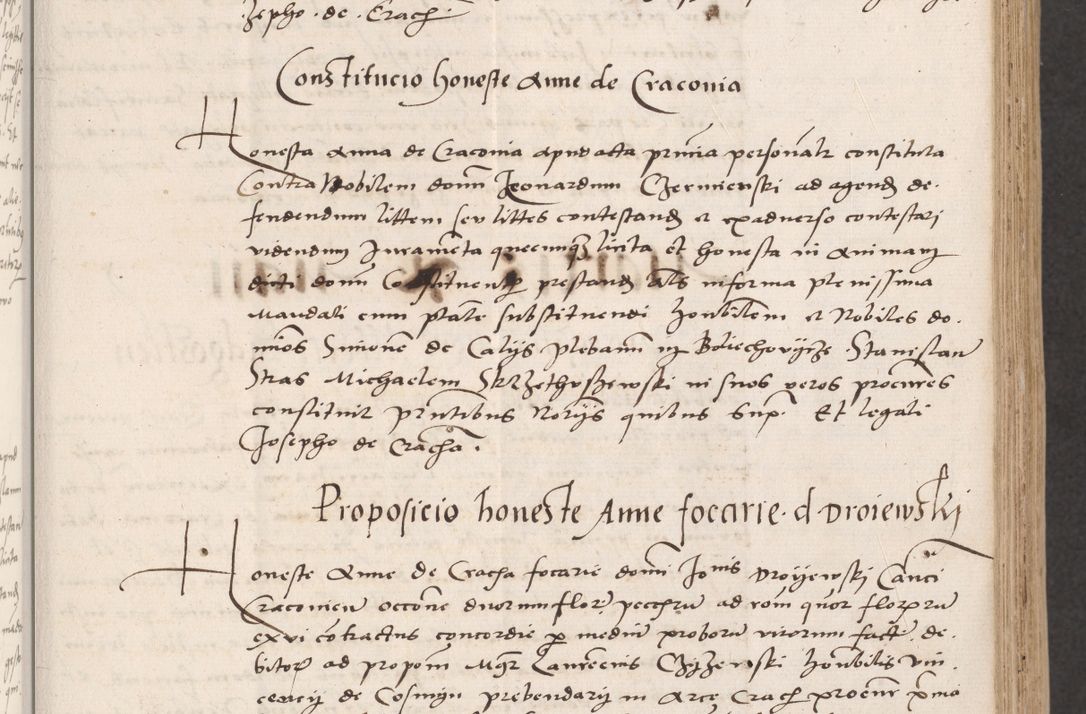 Jzepho. de. Crach.
Constitucio honeste Anne de Craconia
Honesta Anna de Craconia apud acta presentia personalr constituta
Contra Nobilem domn Leonardum Czermienski ad agend de-
fendendum littem seu littes contestand et ex adverso contestari
videndum Juramenta quecunqz licita et honesta in Animam
dicti domn Constituentis prestand Als in forma plenissima
mandati cum ptate substituendi honbilem et Nobiles do-
minos Simone de Calijs plebanm in Boliechovijcze. Stanislau
Stras Michaelem Skrzethuszewski in suos veros procures
constituit pntibus Norijs quibus sup. Et legali
Josepho de Cracha.
Proposicio honeste Anne focarie. d Droiewski
Honeste Anne de Cracha focarie domni Jonis Droyewski Canci
Craconien occone duorum flor pecchru ad rom quor flor pru
ex vi contractus concordie p mediu proboru virorum fact. de-
bitor ad propom Mgr Laurencius Czyzewski honbilis Vin-
cencij de Cosmijn prebendarij in Arce Crach procur pmo